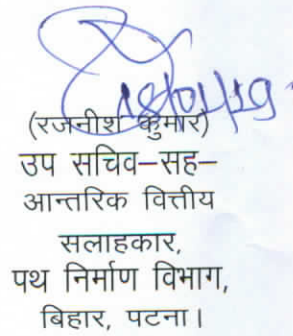 18/04/19
(रजनीश कुमार)
उप सचिव–सह–
आन्तरिक वित्तीय
सलाहकार,
पथ निर्माण विभाग,
बिहार, पटना।